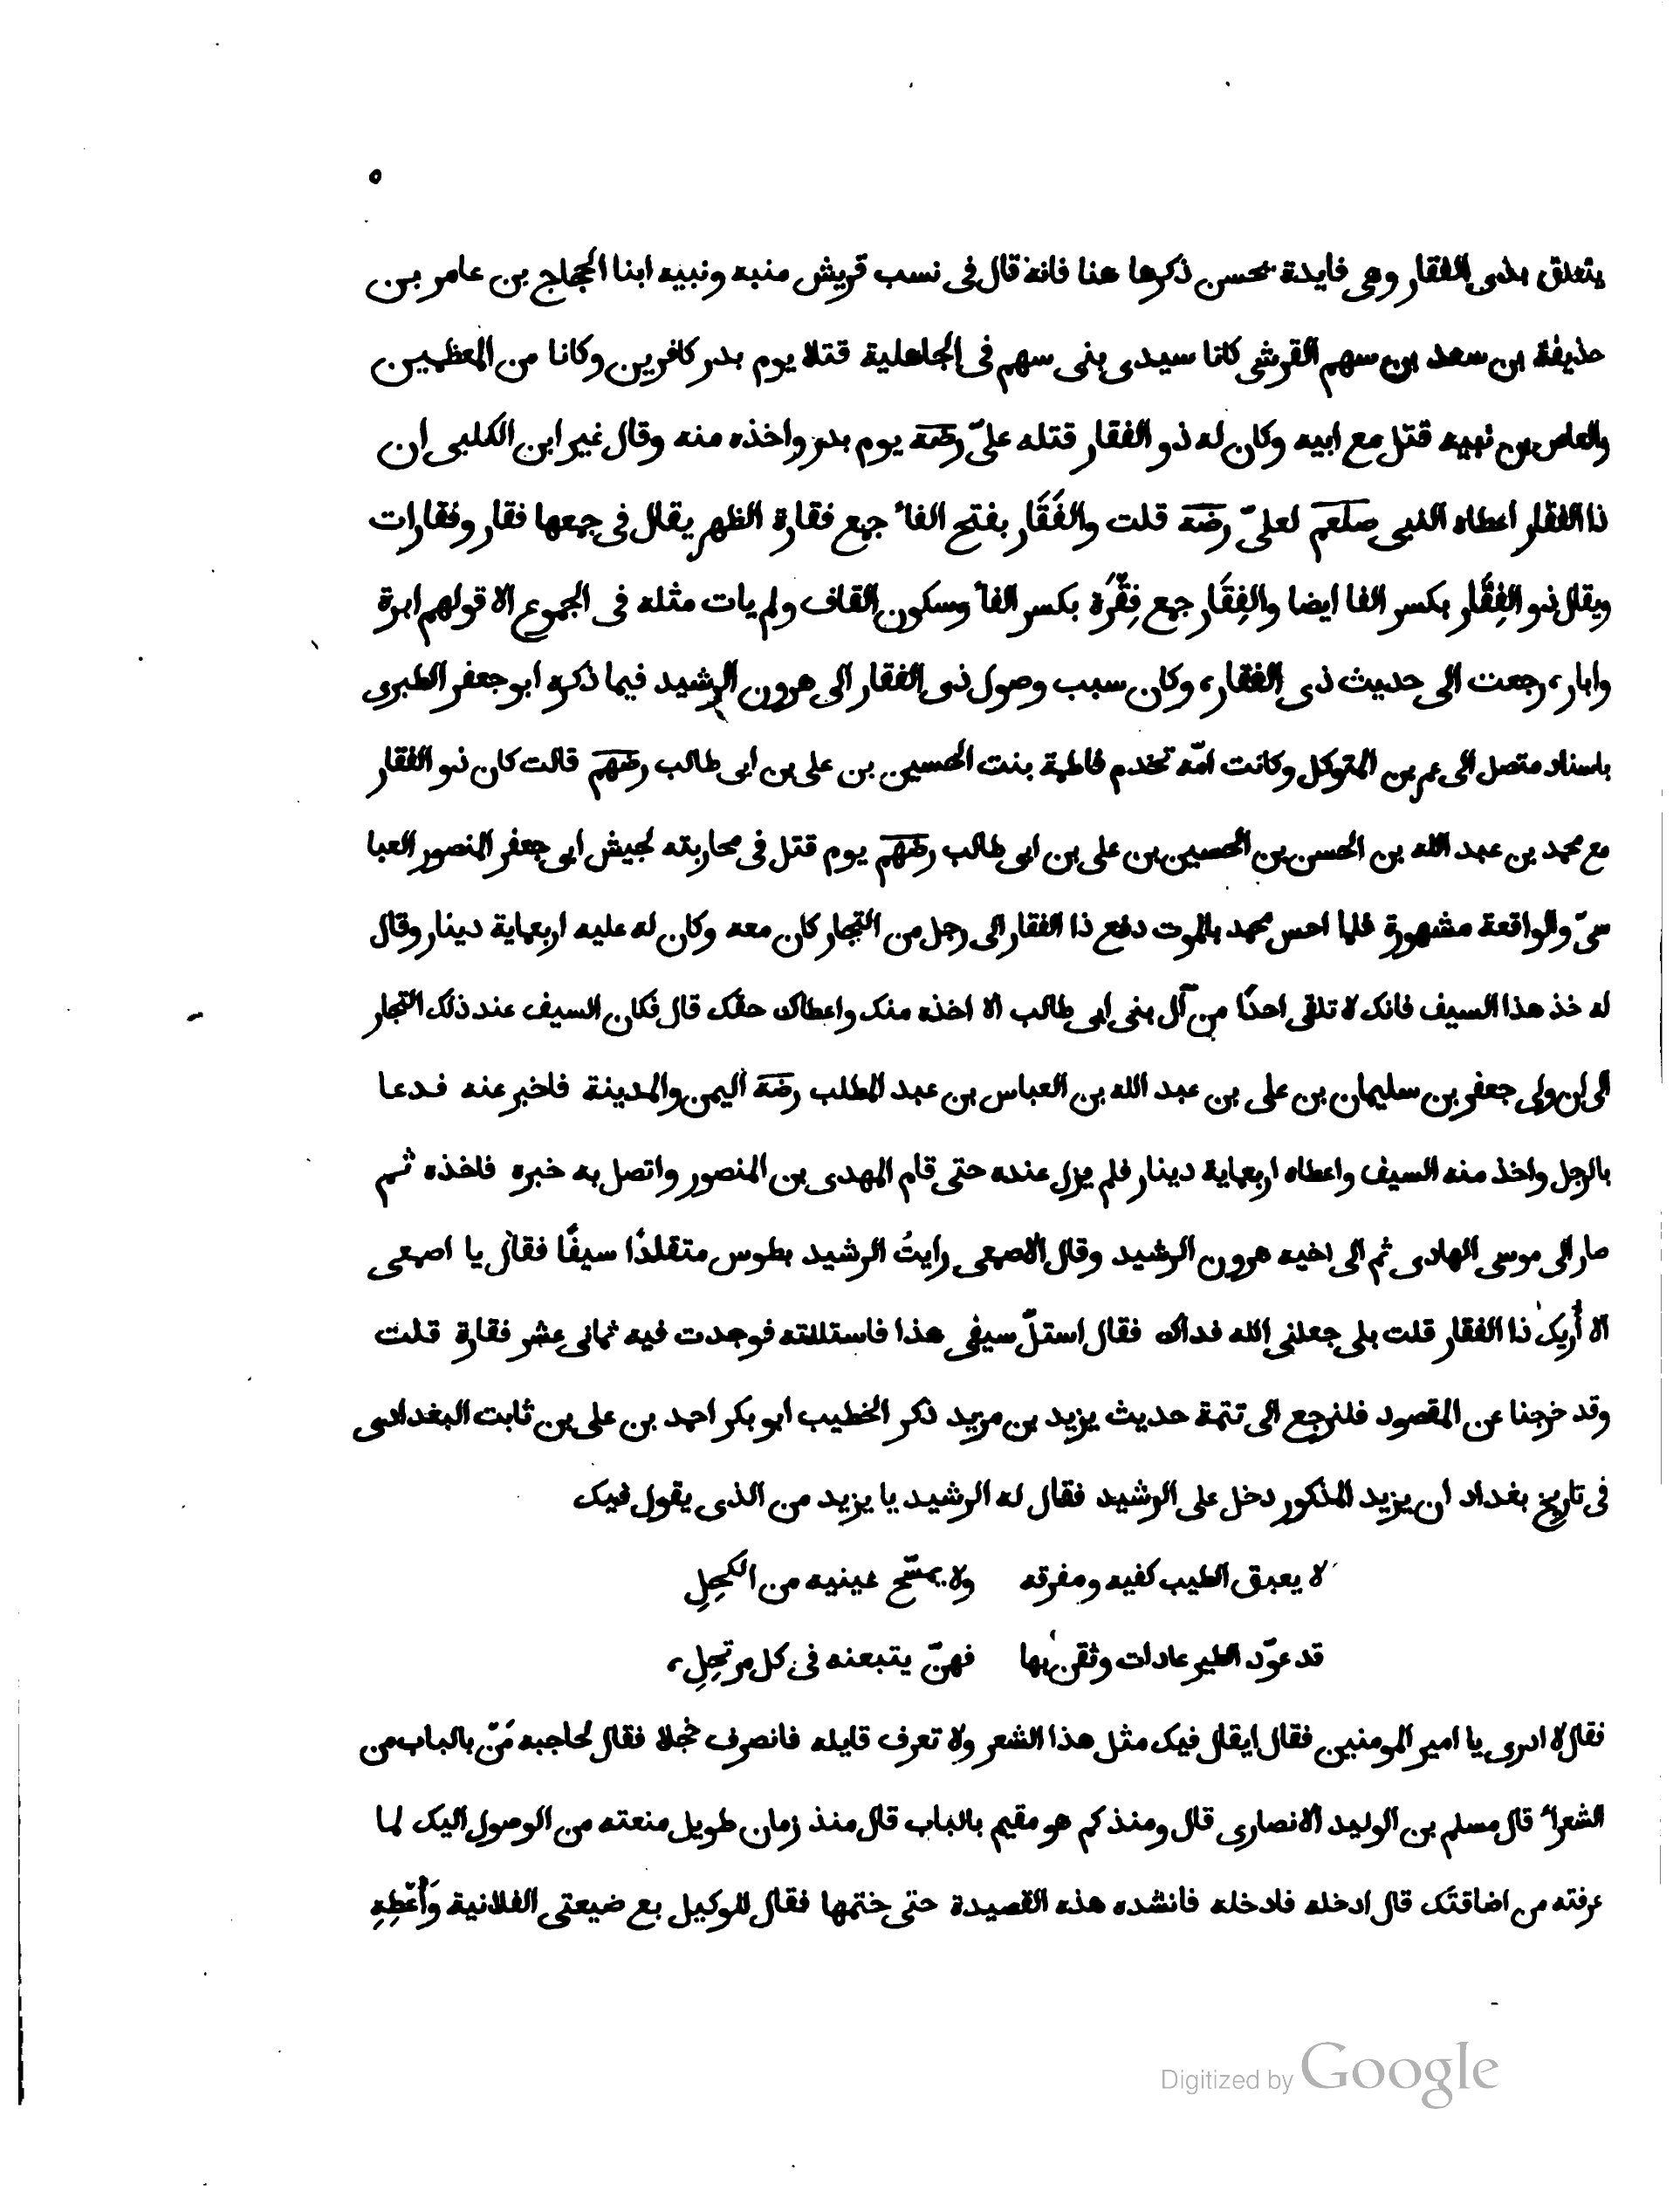 ٥
يتعلق بذى الفقار وهى فايدة يحسن ذكرها هنا فانه قال فى نسب قريش منبه ونبيه ابنا الحجاج بن عامر بن
حذيفة بن سعد بن سهم القرشى كانا سيدى بنى سهم فى الجاهلية قتلا يوم بدر كافرين وكانا من المعظمين
والعاص بن نبيه قتل مع ابيه وكان له ذو الفقار قتله علىّ رضه يوم بدر واخذه منه وقال غير ابن الكلبى ان
ذا الفقار اعطاه النبى صلعم لعلىّ رضه قلت والفَقَار بفتح الفاء جمع فقارة الظهر يقال فى جمعها فقار وفقارات
ويقال ذو الفِقَار بكسر الفا ايضا والفِقَار جمع فِقْرَة بكسر الفاء وسكون القاف ولم يات مثله فى الجموع الا قولهم ابرة
وابار، رجعت الى حديث ذى الفقار، وكان سبب وصول ذى الفقار الى هرون الرشيد فيما ذكره ابو جعفر الطبرى
باسناد متصل الى عمر بن المتوكل وكانت امّه تخدم فاطمة بنت الحسين بن على بن ابى طالب رضهم قالت كان ذو الفقار
مع محمد بن عبد الله بن الحسن بن الحسين بن على بن ابى طالب رضهم يوم قتل فى محاربته لجيش ابى جعفر المنصور العبا
سىّ والواقعة مشهورة فلما احس محمد بالموت دفع ذا الفقار الى رجل من التجار كان معه وكان له عليه اربعماية دينار وقال
له خذ هذا السيف فانك لا تلقى احدًا من آل بنى ابى طالب الا اخذه منك واعطاك حقك قال فكان السيف عند ذلك التجار
الى ان ولى جعفر بن سليمان بن على بن عبد الله بن العباس بن عبد المطلب رضه اليمن والمدينة فاخبر عنه فدعا
بالرجل واخذ منه السيف واعطاه اربعماية دينار فلم يزل عنده حتى قام المهدى بن المنصور واتصل به خبره فاخذه ثم
صار الى موسى الهادى ثم الى اخيه هرون الرشيد وقال الاصمعى رايتُ الرشيد بطوس متقلدًا سيفًا فقال يا اصمعى
الا أُريك ذا الفقار قلت بلى جعلنى الله فداك فقال استلّ سيفى هذا فاستللته فوجدت فيه ثمانى عشر فقارة قلت
وقد خرجنا عن المقصود فلنرجع الى تتمة حديث يزيد بن مزيد ذكر الخطيب ابو بكر احمد بن على بن ثابت البغدادى
فى تاريخ بغداد ان يزيد المذكور دخل على الرشيد فقال له الرشيد يا يزيد من الذى يقول فيك
لا يعبق الطيب كفيه ومفرقه ولا يمسّح عينيه من الكحِلِ
قد عوّد الطير عادات وثقن بها فهنّ يتبعنه فى كل مرتحِلِ،
فقال لا ادرى يا امير المومنين فقال ايقال فيك مثل هذا الشعر ولا تعرف قايله فانصرف خجلا فقال لحاجبه مَنْ بالباب من
الشعراء قال مسلم بن الوليد الانصارى قال ومنذ كم هو مقيم بالباب قال منذ زمان طويل منعته من الوصول اليك لما
عرفته من اضاقتك قال ادخله فادخله فانشده هذه القصيدة حتى ختمها فقال للوكيل بع ضيعتى الفلانية وَأَعْطِهِ
Digitized by Google